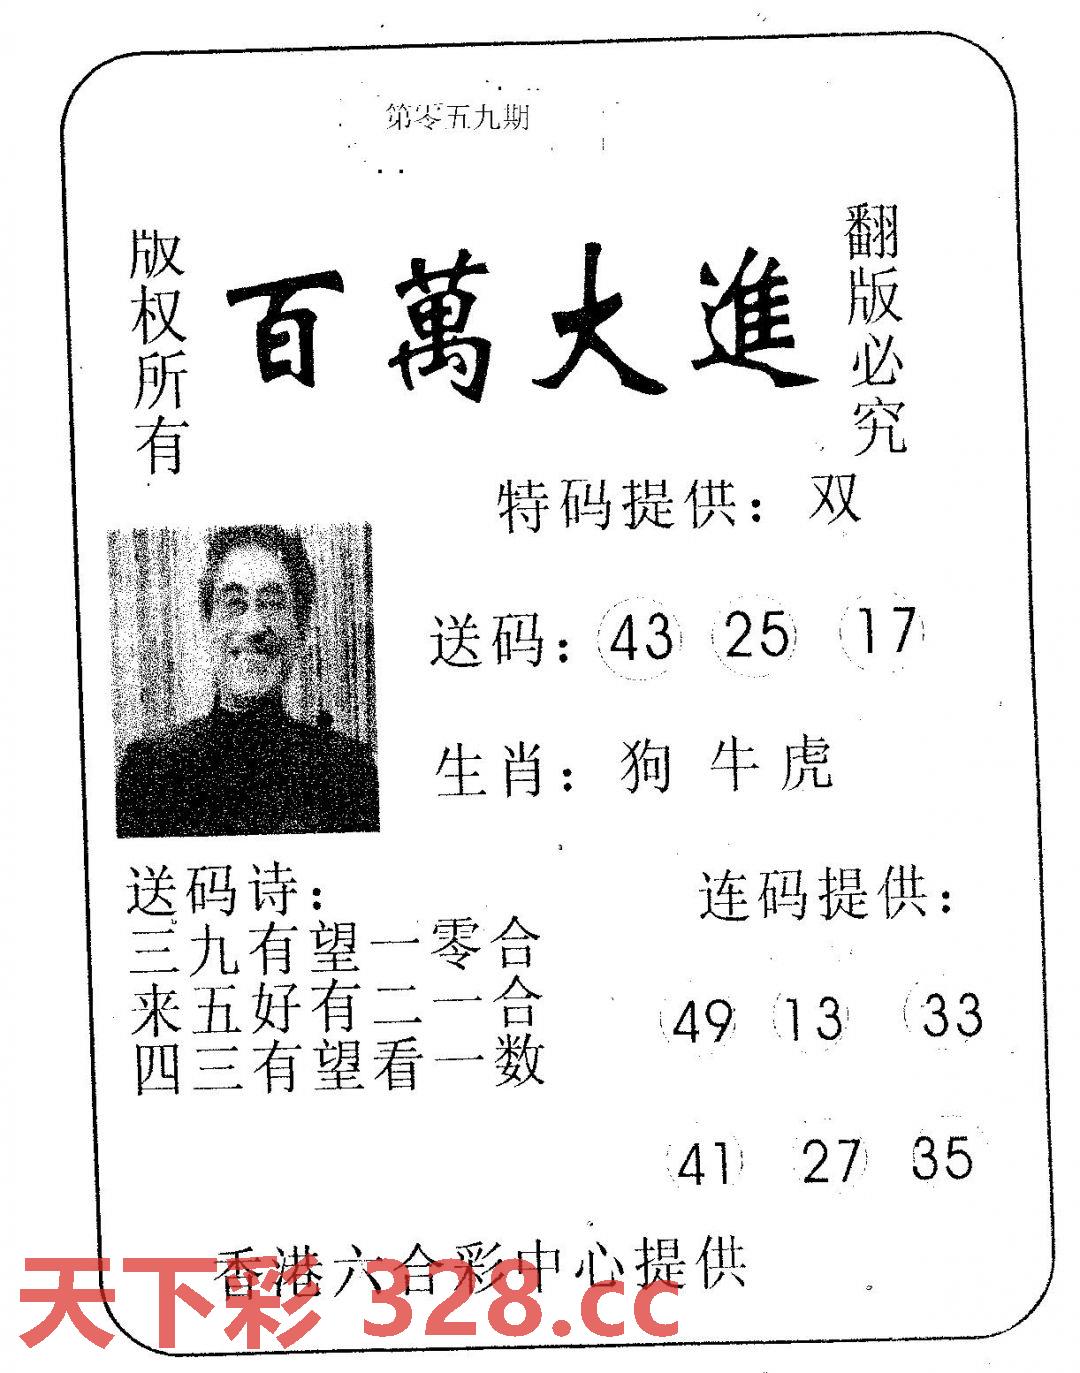 第零五九期
版权所有
百萬大進
翻版必究
特码提供：双
送码：43 25 17
生肖：狗 牛 虎
送码诗：
三九有望一零合
来五好有二一合
四三有望看一数
连码提供：
49 13 33
41 27 35
香港六合彩中心提供
天下彩 328.cc